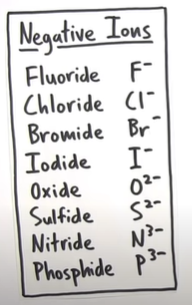 Negative Ions
Fluoride F⁻
Chloride Cl⁻
Bromide Br⁻
Iodide I⁻
Oxide O²⁻
Sulfide S²⁻
Nitride N³⁻
Phosphide P³⁻